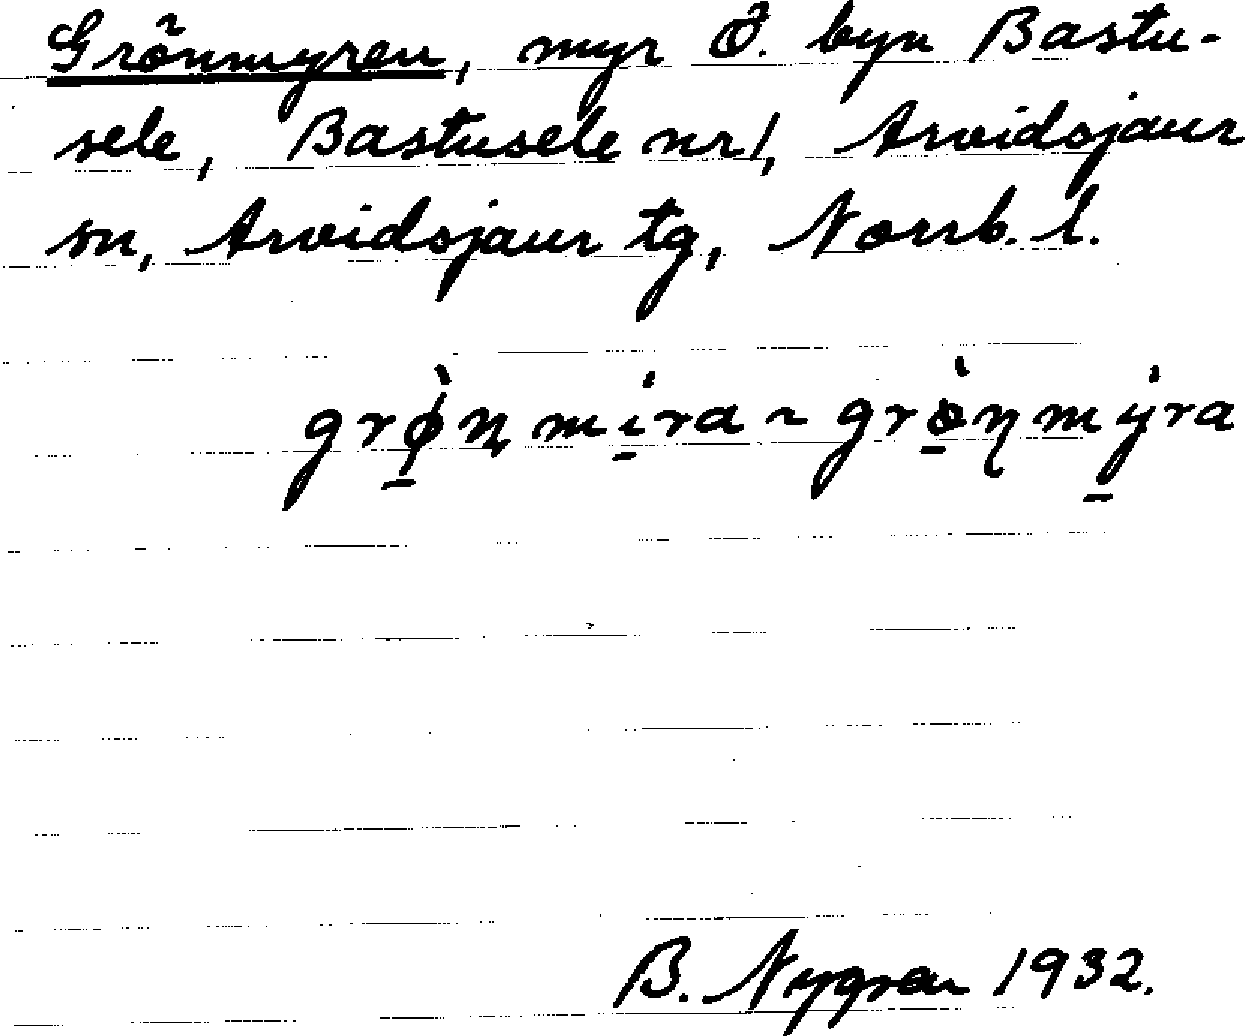 Grönmyren, myr Ö. byn Bastu-
sele, Bastusele nr 1, Arvidsjaur
sn, Arvidsjaur tg, Norrb. l.
grø̱̀nmi̱ra ~ grò̱nmy̱ra
B. Nygren 1932.